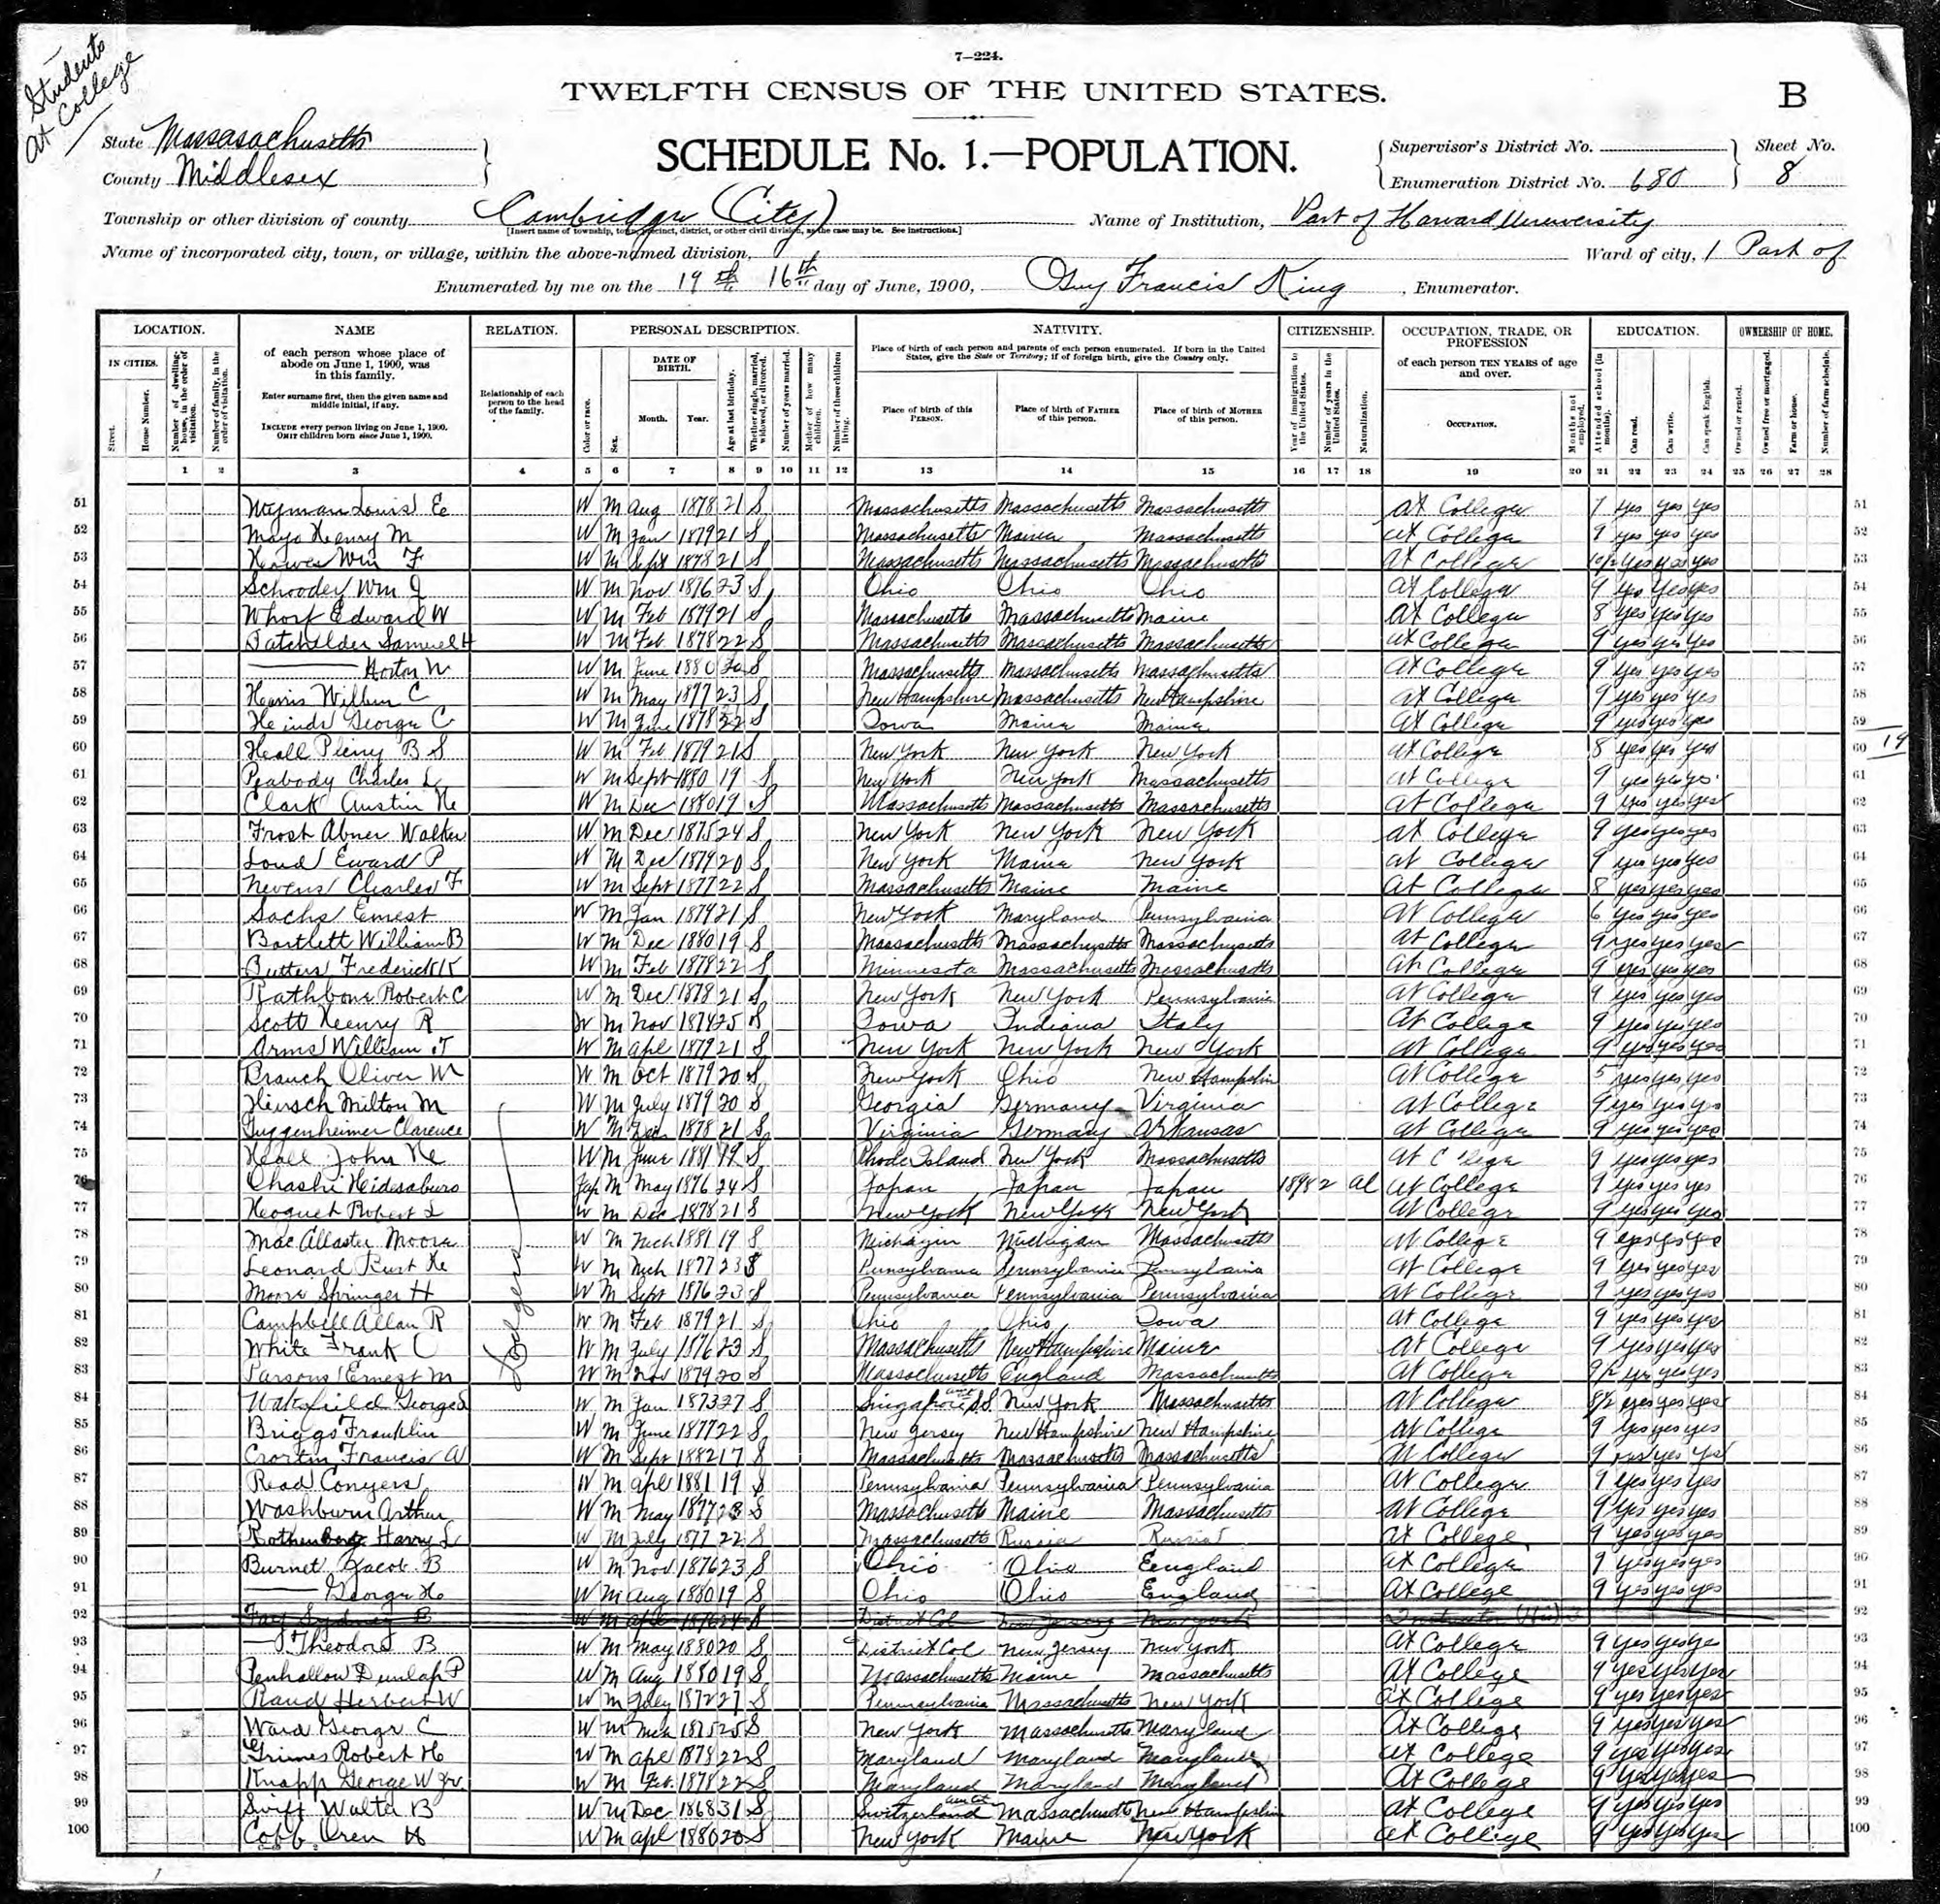 Students
at College
7—224.
TWELFTH CENSUS OF THE UNITED STATES.
B
State Massasachusetts
County Middlesex
SCHEDULE No. 1.—POPULATION.
Supervisor's District No.
Enumeration District No. 680
Sheet No.
8
Township or other division of county Cambridge (City)
[Insert name of township, town, precinct, district, or other civil division, as the case may be. See instructions.]
Name of Institution, Part of Harvard University
Name of incorporated city, town, or village, within the above-named division,
Ward of city, 1 Part of
Enumerated by me on the 19th 16th day of June, 1900, Guy Francis King, Enumerator.
LOCATION. NAME RELATION. PERSONAL DESCRIPTION. NATIVITY. CITIZENSHIP. OCCUPATION, TRADE, OR PROFESSION EDUCATION. OWNERSHIP OF HOME.
IN CITIES. Street. House Number. Number of dwelling-house, in the order of visitation. Number of family, in the order of visitation.
of each person whose place of abode on June 1, 1900, was in this family.
Enter surname first, then the given name and middle initial, if any.
INCLUDE every person living on June 1, 1900.
OMIT children born since June 1, 1900.
Relationship of each person to the head of the family.
Color or race. Sex. DATE OF BIRTH. Month. Year. Age at last birthday. Whether single, married, widowed, or divorced. Number of years married. Mother of how many children. Number of these children living.
Place of birth of each person and parents of each person enumerated. If born in the United States, give the State or Territory; if of foreign birth, give the Country only.
Place of birth of this PERSON. Place of birth of FATHER of this person. Place of birth of MOTHER of this person.
Year of immigration to the United States. Number of years in the United States. Naturalization.
of each person TEN YEARS of age and over.
OCCUPATION. Months not employed.
Attended school (in months). Can read. Can write. Can speak English.
Owned or rented. Owned free or mortgaged. Farm or house. Number of farm schedule.
1 2 3 4 5 6 7 8 9 10 11 12 13 14 15 16 17 18 19 20 21 22 23 24 25 26 27 28
51 Wyman Louis E W M Aug 1878 21 S Massachusetts Massachusetts Massachusetts at College 7 yes yes yes 51
52 Mayo Henry M W M Jan 1879 21 S Massachusetts Maine Massachusetts at College 9 yes yes yes 52
53 Wm F W M Sept 1878 21 S Massachusetts Massachusetts Massachusetts at College yes yes yes 53
54 Wm J W M Nov 1876 23 S Ohio Ohio Ohio at College 9 yes yes yes 54
55 Whorf Edward W W M Feb 1879 21 S Massachusetts Massachusetts Maine at College 8 yes yes yes 55
56 Batchelder Samuel H W M Feb 1878 22 S Massachusetts Massachusetts Massachusetts at College 9 yes yes yes 56
57 —— Horton W W M June 1880 S Massachusetts Massachusetts Massachusetts at College 9 yes yes yes 57
58 Harris Wilbur C W M May 1877 23 S New Hampshire Massachusetts New Hampshire at College 9 yes yes yes 58
59 George C W M June 1878 22 S Iowa Maine Maine at College 9 yes yes yes 59
60 Hall Pliny B S W M Feb 1879 21 S New York New York New York at College 8 yes yes yes 60 19
61 Peabody Charles L W M Sept 1880 19 S New York New York Massachusetts at College 9 yes yes yes 61
62 Clark Austin H W M Dec 1880 19 S Massachusetts Massachusetts Massachusetts at College 9 yes yes yes 62
63 Frost Abner Walker W M Dec 1875 24 S New York New York New York at College 9 yes yes yes 63
64 Loud Eward P W M Dec 1879 20 S New York Maine New York at College 9 yes yes yes 64
65 Nevens Charles F W M Sept 1877 22 S Massachusetts Maine Maine at College 8 yes yes yes 65
66 Sachs Ernest W M Jan 1879 21 S New York Maryland Pennsylvania at College 6 yes yes yes 66
67 Bartlett William B W M Dec 1880 19 S Massachusetts Massachusetts Massachusetts at College 9 yes yes yes 67
68 Butters Frederick K W M Feb 1878 22 S Minnesota Massachusetts Massachusetts at College 9 yes yes yes 68
69 Rathbone Robert C W M Dec 1878 21 S New York New York Pennsylvania at College 9 yes yes yes 69
70 Scott Henry R W M Nov 1874 25 S Iowa Indiana Italy at College 9 yes yes yes 70
71 Arms William T W M Apl 1879 21 S New York New York New York at College 9 yes yes yes 71
72 Branch Oliver W W M Oct 1879 20 S New York Ohio New Hampshire at College 5 yes yes yes 72
73 Hirsch Milton M W M July 1879 20 S Georgia Germany Virginia at College 9 yes yes yes 73
74 Guggenheimer Clarence W M Dec 1878 21 S Virginia Germany Arkansas at College 9 yes yes yes 74
75 Hall John He W M June 1881 19 S Rhode Island New York Massachusetts at College 9 yes yes yes 75
76 Ohashi Hidesaburo Jap M May 1876 24 S Japan Japan Japan 1898 2 Al at College 9 yes yes yes 76
77 Hoguet Robert L W M Dec 1878 21 S New York New York New York at College 9 yes yes yes 77
78 MacAllaster Moore W M Mch 1881 19 S Michigan Michigan Massachusetts at College 9 yes yes yes 78
79 Leonard Burt He W M Mch 1877 23 S Pennsylvania Pennsylvania Pennsylvania at College 9 yes yes yes 79
80 Moore Springer H W M Sept 1876 23 S Pennsylvania Pennsylvania Pennsylvania at College 9 yes yes yes 80
81 Campbell Allan R W M Feb 1879 21 S Ohio Ohio Iowa at College 9 yes yes yes 81
82 White Frank C W M July 1876 23 S Massachusetts New Hampshire Maine at College 9 yes yes yes 82
83 Parsons Ernest M W M Nov 1879 20 S Massachusetts England Massachusetts at College 9½ yes yes yes 83
84 Wakefield George W M Jan 1873 27 S Singapore New York Massachusetts at College 8½ yes yes yes 84
85 Briggs Franklin W M June 1877 22 S New Jersey New Hampshire New Hampshire at College 9 yes yes yes 85
86 Francis W M Sept 1882 17 S Massachusetts Massachusetts Massachusetts at College 9 yes yes yes 86
87 Read Conyers W M Apl 1881 19 S Pennsylvania Pennsylvania Pennsylvania at College 9 yes yes yes 87
88 Washburn Arthur W M May 1877 23 S Massachusetts Maine Massachusetts at College 9 yes yes yes 88
89 Rothenberg Harry L W M July 1877 22 S Massachusetts Russia Russia at College 9 yes yes yes 89
90 Burnet Jacob B W M Nov 1876 23 S Ohio Ohio England at College 9 yes yes yes 90
91 —— George He W M Aug 1880 19 S Ohio Ohio England at College 9 yes yes yes 91
92 Fay Sydney B W M Apl 1876 24 S District Col New Jersey New York 92
93 — Theodore B W M May 1880 20 S District Col New Jersey New York at College 9 yes yes yes 93
94 Penhallow Dunlap P W M Aug 1880 19 S Massachusetts Maine Massachusetts at College 9 yes yes yes 94
95 Rand Herbert W W M July 1872 27 S Pennsylvania Massachusetts New York at College 9 yes yes yes 95
96 Ward George C W M Mch 1875 25 S New York Massachusetts Maryland at College 9 yes yes yes 96
97 Grimes Robert H W M Apl 1878 22 S Maryland Maryland Maryland at College 9 yes yes yes 97
98 Knapp George W Jr. W M Feb 1878 22 S Maryland Maryland Maryland at College 9 yes yes yes 98
99 Swift Walter B W M Dec 1868 31 S Switzerland Massachusetts New Hampshire at College 9 yes yes yes 99
100 Cobb Oren H W M Apl 1880 20 S New York Maine New York at College 9 yes yes yes 100